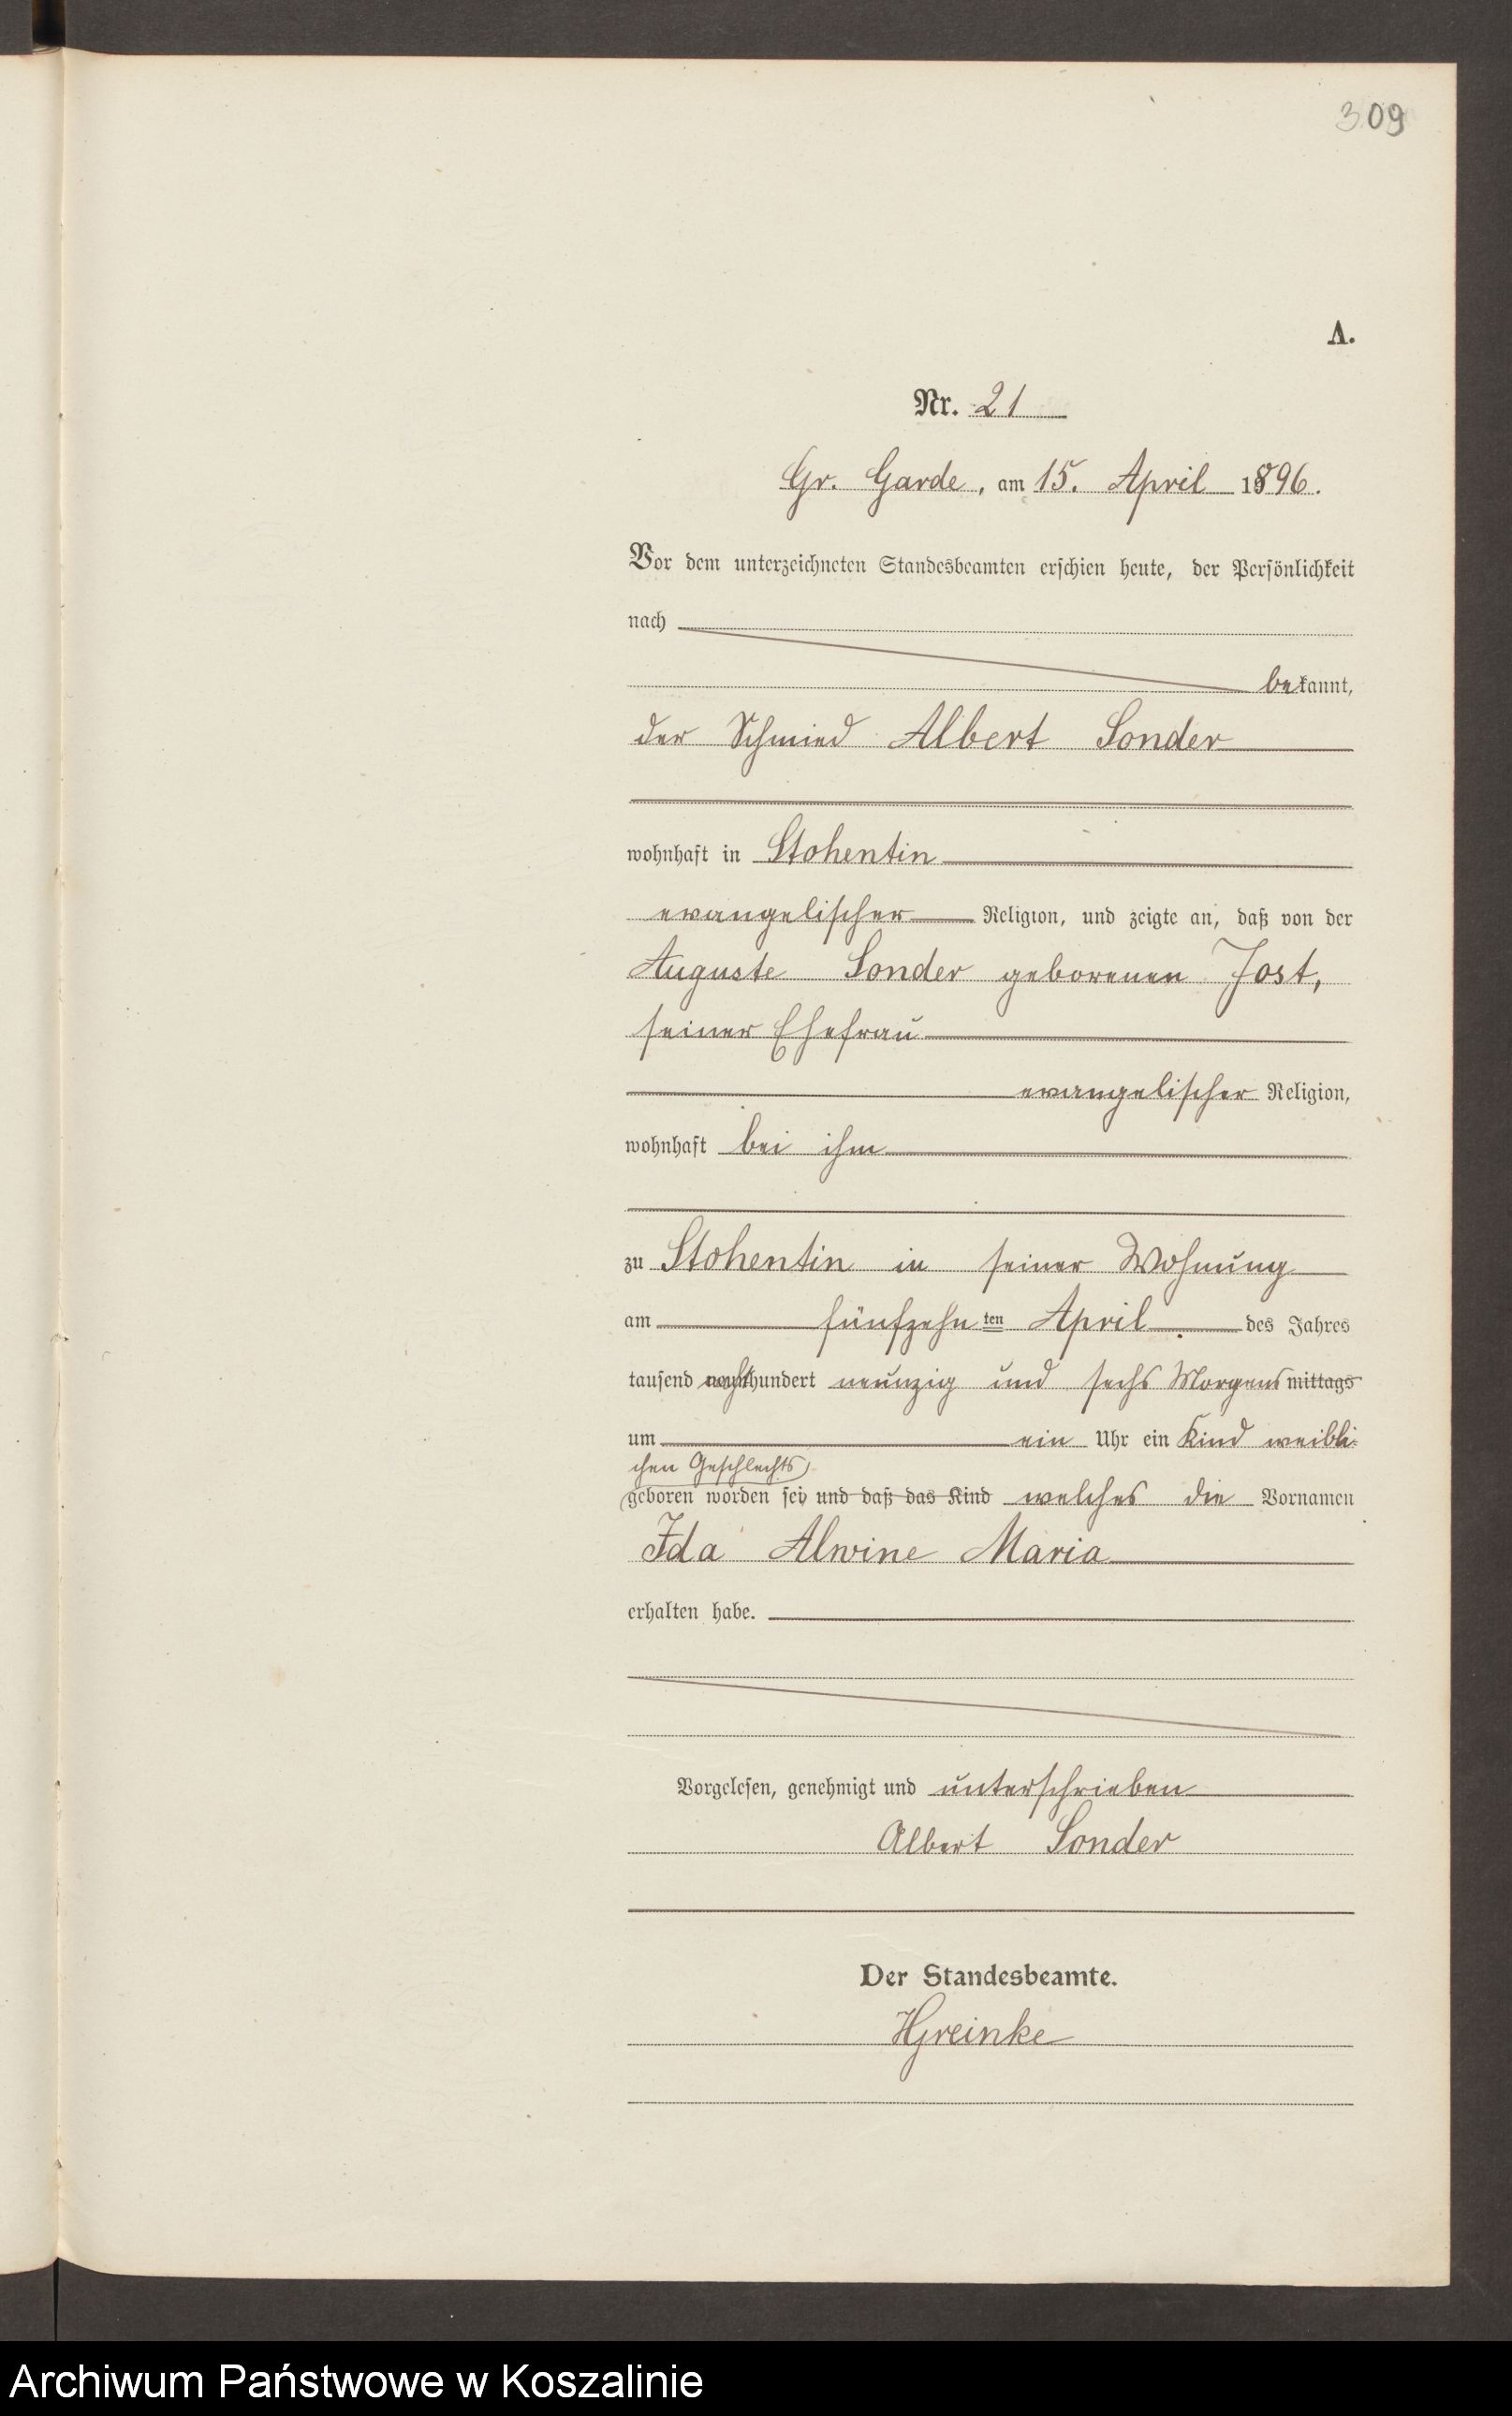 309
A.
Nr. 21
Gr. Garde, am 15. April 1896.
Vor dem unterzeichneten Standesbeamten erschien heute, der Persönlichkeit
nach
bekannt,
der Schmied Albert Sonder
wohnhaft in Stohentin
evangelischer Religion, und zeigte an, daß von der
Auguste Sonder geborenen Jost,
seiner Ehefrau
evangelischer Religion,
wohnhaft bei ihm
zu Stohentin in seiner Wohnung
am fünfzehnten April des Jahres
tausend achthundert neunzig und sechs Morgens mittags
um ein Uhr ein Kind weibli-
chen Geschlechts
geboren worden sei und daß das Kind welches die Vornamen
Ida Alwine Maria
erhalten habe.
Vorgelesen, genehmigt und unterschrieben
Albert Sonder
Der Standesbeamte.
HGreinke
Archiwum Państwowe w Koszalinie